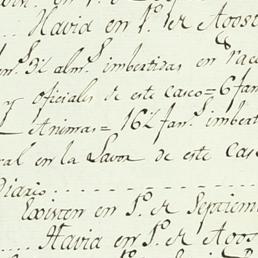 Havia en 1º. de Agost
imbertidas en
y oficiales de este casco = 6 fan
Animas = 162 fanˢ. imbert
ral en la Lavor de este cas
Diario
Existen en 1º. de Septiem
Havia en 1º. de Agos